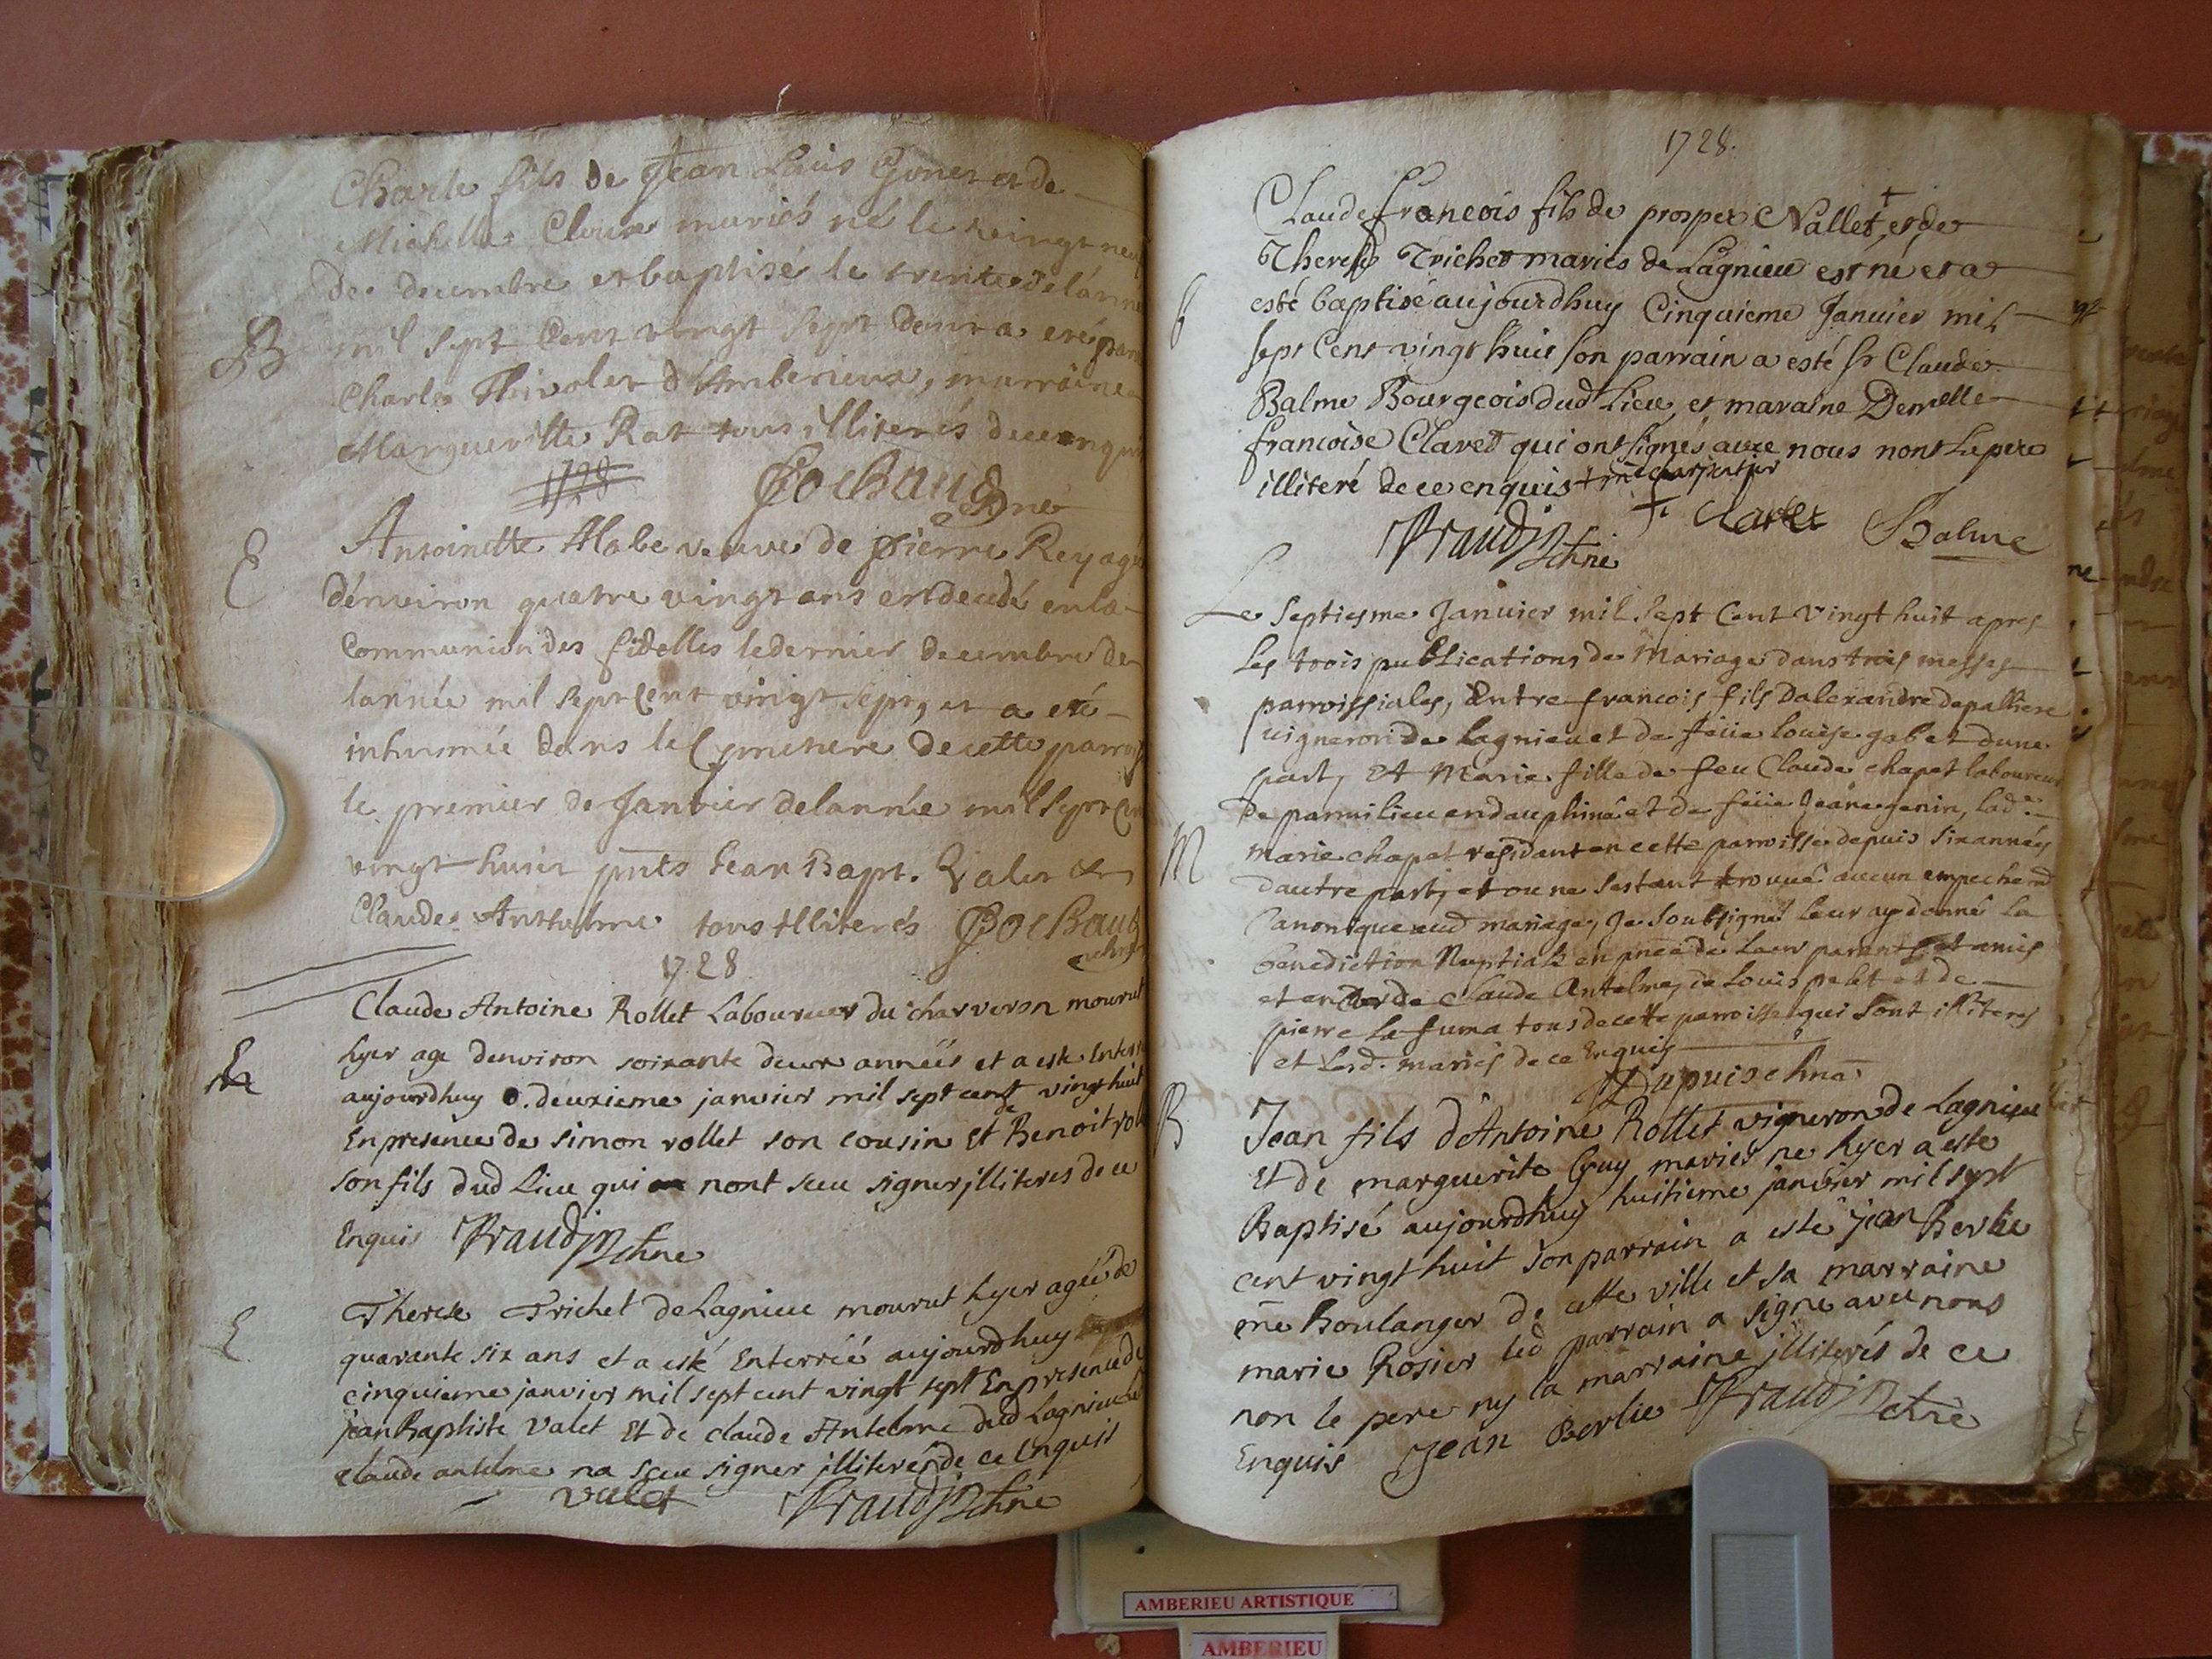 Charle fils de Jean Louis Gonet et de
Michelle mariés né le vingt neuf
de decembre et baptisé le trente de lánnée
B mil sept Cent vingt sept dont a eté
Charle Thivolet d'Amberieux, marraine
Margueritte Rat tous illiterés de ce enquis
1728 Bochaud
Antoinette veuve de pierre Rey agée
E dénviron quatre vingt ans est decedé en la
Communion des fidelles le dernier decembre de
lannée mil sept Cent vingt sept, et a eté
inhumée dans le Cymetiere de cette parroisse
le premier de Janvier de lannée mil sept Cent
vingt huict pnts Jean Bapt. Valet &
Claude Anthelme tous illiterés Bochaud
1728
Claude Antoine Rollet Laboureur du charveron mourut
E hyer age denviron soixante deux années et a este Enterré
aujourdhuy deuxieme janvier mil sept cent vingt huit
En presence de simon rollet son cousin et de Benoit
son fils dud Lieu qui nont sceu signer jlliteres de ce
Enquis Praudin chne
E Therese Trichet de Lagnieu mourut hyer ageé de
quarante six ans et a esté Enterreé aujourdhuy
cinquieme janvier mil sept cent vingt sept En presence de
jean Baptiste Valet Et de claude Antelme dud Lagnieu
claude antelme na sceu signer jlliterés de ce Enquis
valet Praudin chne
1728.
Claude francois fils de prosper Vallet + et de
Therese Trichet mariés de Lagnieu est né et a
B esté baptisé aujourdhuy Cinquieme Janvier mil
sept Cent vingt huit son parrain a esté sr Claude
Balme Bourgeois dud Lieu, et maraine Demelle
francoise Claret qui ont signés avec nous non le pere
illiteré de ce enquis + me charpentier
Praudin chne f. claret Balme
Le Septiesme Janvier mil sept Cent vingt huit apres
les trois publications de Mariage dans trois messes
parroissiales, Entre francois fils dalexandre depalliere
vigneron de lagnieu et de feüe louise gabet dune
part, Et Marie fille de feu Claude chapat laboureur
de parmilieu en dauphiné et de feüe Jeane genin, lade
M marie chapat residant en cette parroisse depuis six années
dautre part, et ou ne sestant trouué aucun empechemt
Canonique aud mariage, Je soubsigné leur ay donné la
benediction Nuptiale en pnce de leur parents et amis
et de Claude Antelme, de Louis pelet et de
pierre Lafuma tous de cette parroisse qui sont illiteres
et lesd. mariés de ce Enquis
Dupuis chne
B Jean fils d'Antoine Rollet vigneron de Lagnieu
Et de marguerite Guy mariés ne hyer a este
Baptisé aujourdhuy huitieme janvier mil sept
cent vingt huit son parrain a este jean Berlie
me Boulanger de cette ville et sa marraine
marie Rosier led parrain a signe avec nous
non le pere ny la marraine jlliterés de ce
Enquis Jean Berlie Praudin chne
AMBERIEU ARTISTIQUE
AMBERIEU